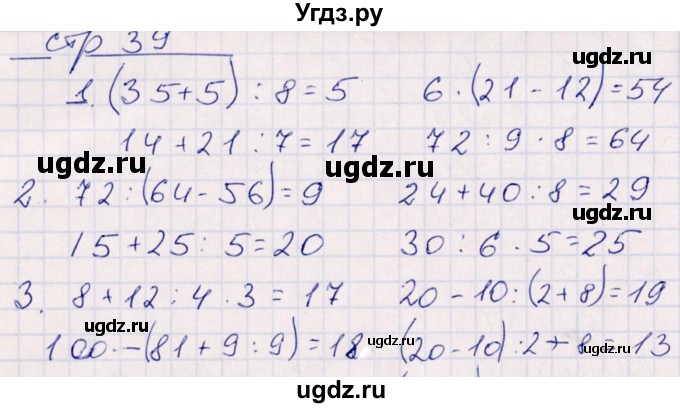 Угдз.ру
стр 39
1. (35+5) : 8 = 5 6 · (21 - 12) = 54
14 + 21 : 7 = 17 72 : 9 · 8 = 64
ugdz.ru ugdz.ru ugdz.ru
2. 72 : (64 - 56) = 9 24 + 40 : 8 = 29
ugdz.ru
15 + 25 : 5 = 20 30 : 6 · 5 = 25
ugdz.ru
3. 8 + 12 : 4 · 3 = 17 20 - 10 : (2 + 8) = 19
ugdz.ru ugdz.ru ugdz.ru
100 - (81 + 9 : 9) = 18 (20 - 10) : 2 + 8 = 13
ugdz.ru